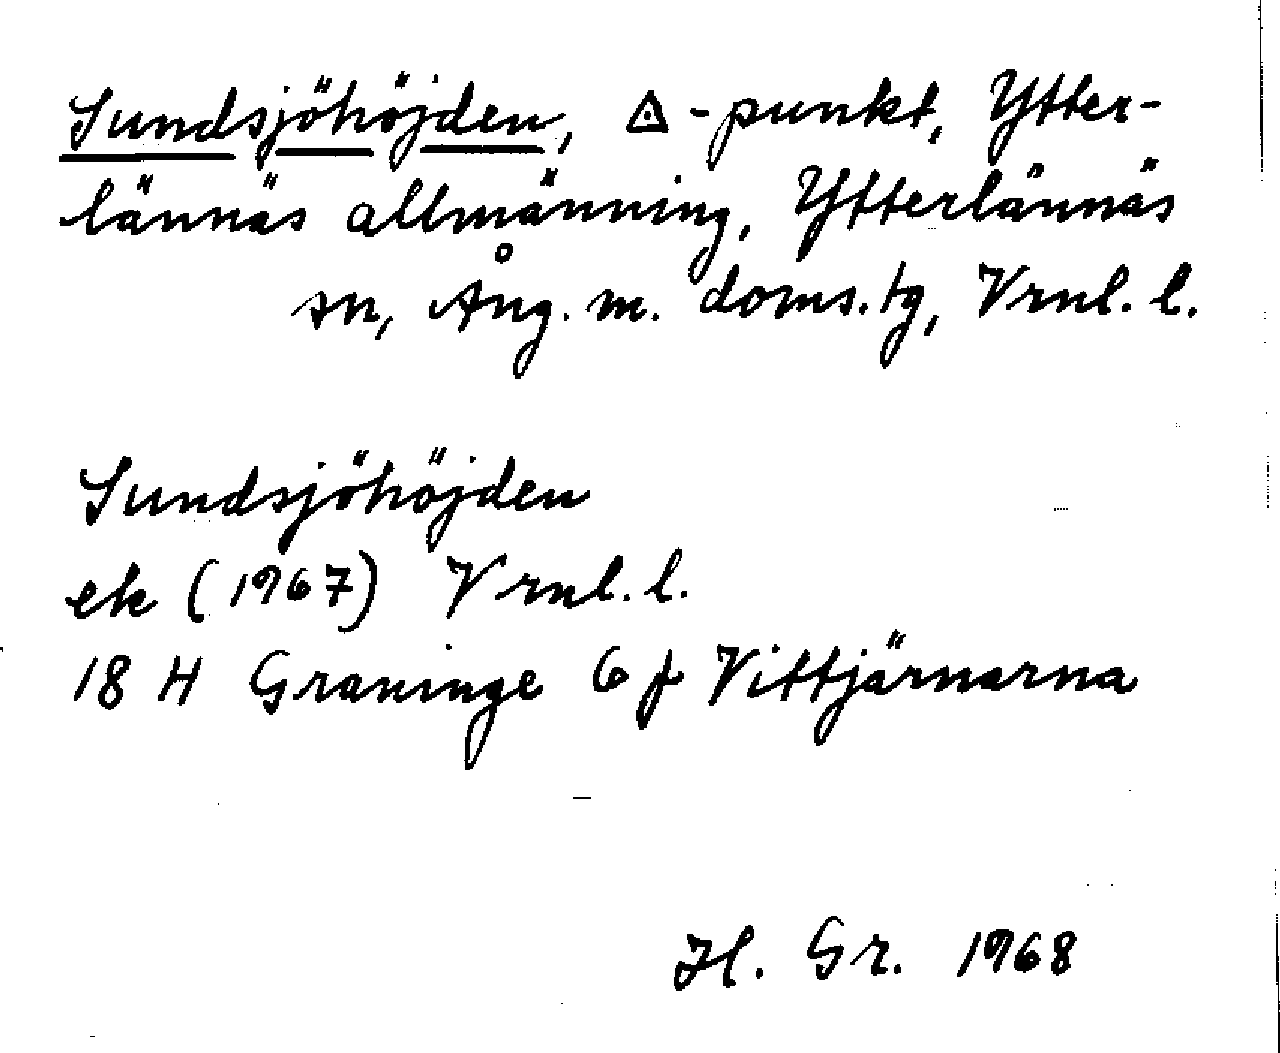 Sundsjöhöjden, ◬-punkt, Ytter-
lännäs allmänning, Ytterlännäs
sn, Ång. m. doms.tg, Vrnl. l.
Sundsjöhöjden
ek (1967) Vrnl. l.
18 H Graninge 6 f Vittjärnarna
H. Gr. 1968